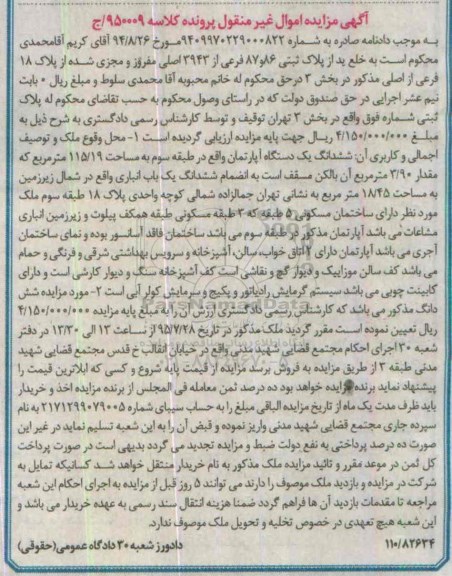 آگهی مزایده اموال غیر منقول پرونده کلاسه ۹۵۰۰۰۹/ج
به موجب دادنامه صادره به شماره ۹۴۰۹۹۷۰۲۲۹۰۰۰۸۲۲ مورخ ۹۴/۸/۲۶ آقای کریم آقامحمدی
محکوم است به خلع ید از پلاک ثبتی ۸۶و۸۷ فرعی از ۳۹۴۳ اصلی مفروز و مجزی شده از پلاک ۱۸
فرعی از اصلی مذکور در بخش ۳ درحق محکوم له خانم محبوبه آقا محمدی سلوط و مبلغ ریال ۰ بابت
نیم عشر اجرایی در حق صندوق دولت که در راستای وصول محکوم به حسب تقاضای محکوم له پلاک
ثبتی شماره فوق واقع در بخش ۳ تهران توقیف و توسط کارشناس رسمی دادگستری به شرح ذیل به
مبلغ ۴/۱۵۰/۰۰۰/۰۰۰ ریال جهت پایه مزایده ارزیابی گردیده است ۱- محل وقوع ملک و توصیف
اجمالی و کاربری آن: ششدانگ یک دستگاه آپارتمان واقع در طبقه سوم به مساحت ۱۱۵/۱۹ مترمربع که
مقدار ۳/۹۰ مترمربع آن بالکن مسقف است به انضمام ششدانگ یک باب انباری واقع در شمال زیرزمین
به مساحت ۱۸/۴۵ متر مربع به نشانی تهران جمالزاده شمالی کوچه واحدی پلاک ۱۸ طبقه سوم ملک
مورد نظر دارای ساختمان مسکونی ۵ طبقه که ۳ طبقه مسکونی طبقه همکف پیلوت و زیرزمین انباری
مشاعات می باشد آپارتمان مذکور در طبقه سوم می باشد ساختمان فاقد آسانسور بوده و نمای ساختمان
آجری می باشد آپارتمان دارای ۲ اتاق خواب، سالن، آشپزخانه و سرویس بهداشتی شرقی و فرنگی و حمام
می باشد کف سالن موزاییک و دیوار گچ و نقاشی است کف آشپزخانه سنگ و دیوار کاشی است و دارای
کابینت چوبی می باشد سیستم گرمایش رادیاتور و پکیج و سرمایش کولر آبی است ۲- مورد مزایده شش
دانگ مذکور می باشد که کارشناس رسمی دادگستری ارزش آن را به مبلغ پایه مزایده ۴/۱۵۰/۰۰۰/۰۰۰
ریال تعیین نموده است مقرر گردید ملک مذکور در تاریخ ۹۵/۷/۲۸ از ساعت ۱۲ الی ۱۳/۳۰ در دفتر
شعبه ۳۰ اجرای احکام مجتمع قضایی شهید مدنی واقع در خیابان انقلاب خ قدس مجتمع قضایی شهید
مدنی طبقه ۳ از طریق مزایده به فروش برسد مزایده از قیمت پایه شروع و کسی که بالاترین قیمت را
پیشنهاد نماید برنده مزایده خواهد بود ده درصد ثمن معامله فی المجلس از برنده مزایده اخذ و خریدار
باید ظرف مدت یک ماه از تاریخ مزایده الباقی مبلغ را به حساب سیبای شماره ۲۱۷۱۲۹۹۰۷۹۰۰۵ به نام
سپرده جاری مجتمع قضایی شهید مدنی واریز نموده و قبض آن را به این شعبه تسلیم نماید در غیر این
صورت ده درصد پرداختی به نفع دولت ضبط و مزایده تجدید می گردد بدیهی است در صورت پرداخت
کل ثمن در موعد مقرر و تائید مزایده ملک مذکور به نام خریدار منتقل خواهد شد کسانیکه تمایل به
شرکت در مزایده و بازدید ملک موصوف را دارند می توانند ۵ روز قبل از مزایده به اجرای احکام این شعبه
مراجعه تا مقدمات بازدید آن ها فراهم گردد ضمنا هزینه انتقال سند رسمی به عهده خریدار می باشد و
این شعبه هیچ تعهدی در خصوص تخلیه و تحویل ملک موصوف ندارد.
۱۱۰/۸۲۶۳۴ دادورز شعبه ۳۰ دادگاه عمومی (حقوقی)